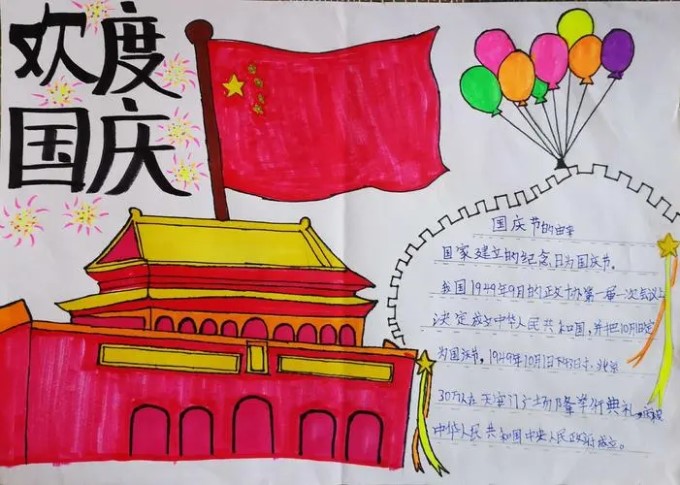 欢度
国庆
国庆节的由来
国家建立的纪念日为国庆节。
我国1949年9月的政协第一届一次会议上
决定成立中华人民共和国,并把10月1日定
为国庆节,1949年10月1日下午3时,北京
30万人在天安门广场隆举行典礼,
中华人民共和国中央人民政府成立。